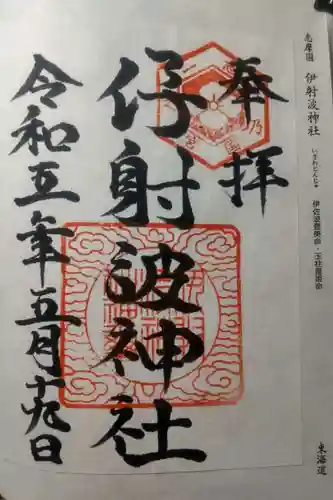 志摩国 伊射波神社 いざわじんじゃ 伊佐波登美命・玉柱屋姫命
東海道
奉拝
伊射波神社
令和五年五月十九日